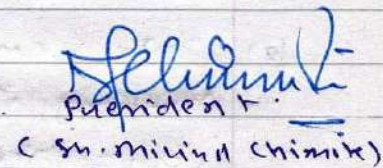 President.
( Sh. Milind Chimite)